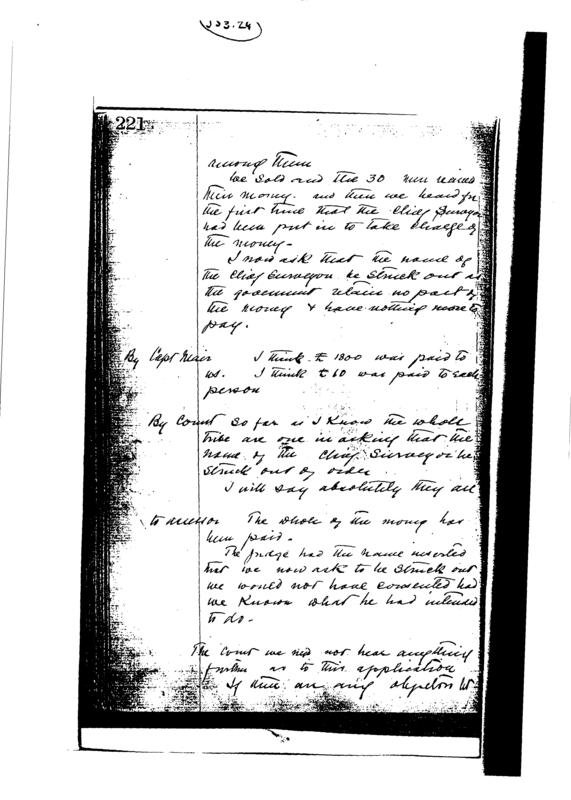 353.24
221
among them
We sold and the 30 men received
their money. and then we heard for
the first time that the Chief Surveyor
had been put in to take charge of
the money -
I now ask that the name of
the Chief Surveyor be struck out as
the government retain no part of
the money & have nothing more to
pay.
By Capt Mair I think £1800 was paid to
us. I think £60 was paid to each
person
By Court so far as I know the whole
tribe are one in asking that the
name of the Chief Surveyor be
struck out of order
I will say absolutely they are
to assessor The whole of the money has
been paid -
The judge had the name inserted
that we now ask to be struck out
we would not have consented had
we known what he had intended
to do -
The Court we need not hear anything
further as to this application
If there are any objectors let